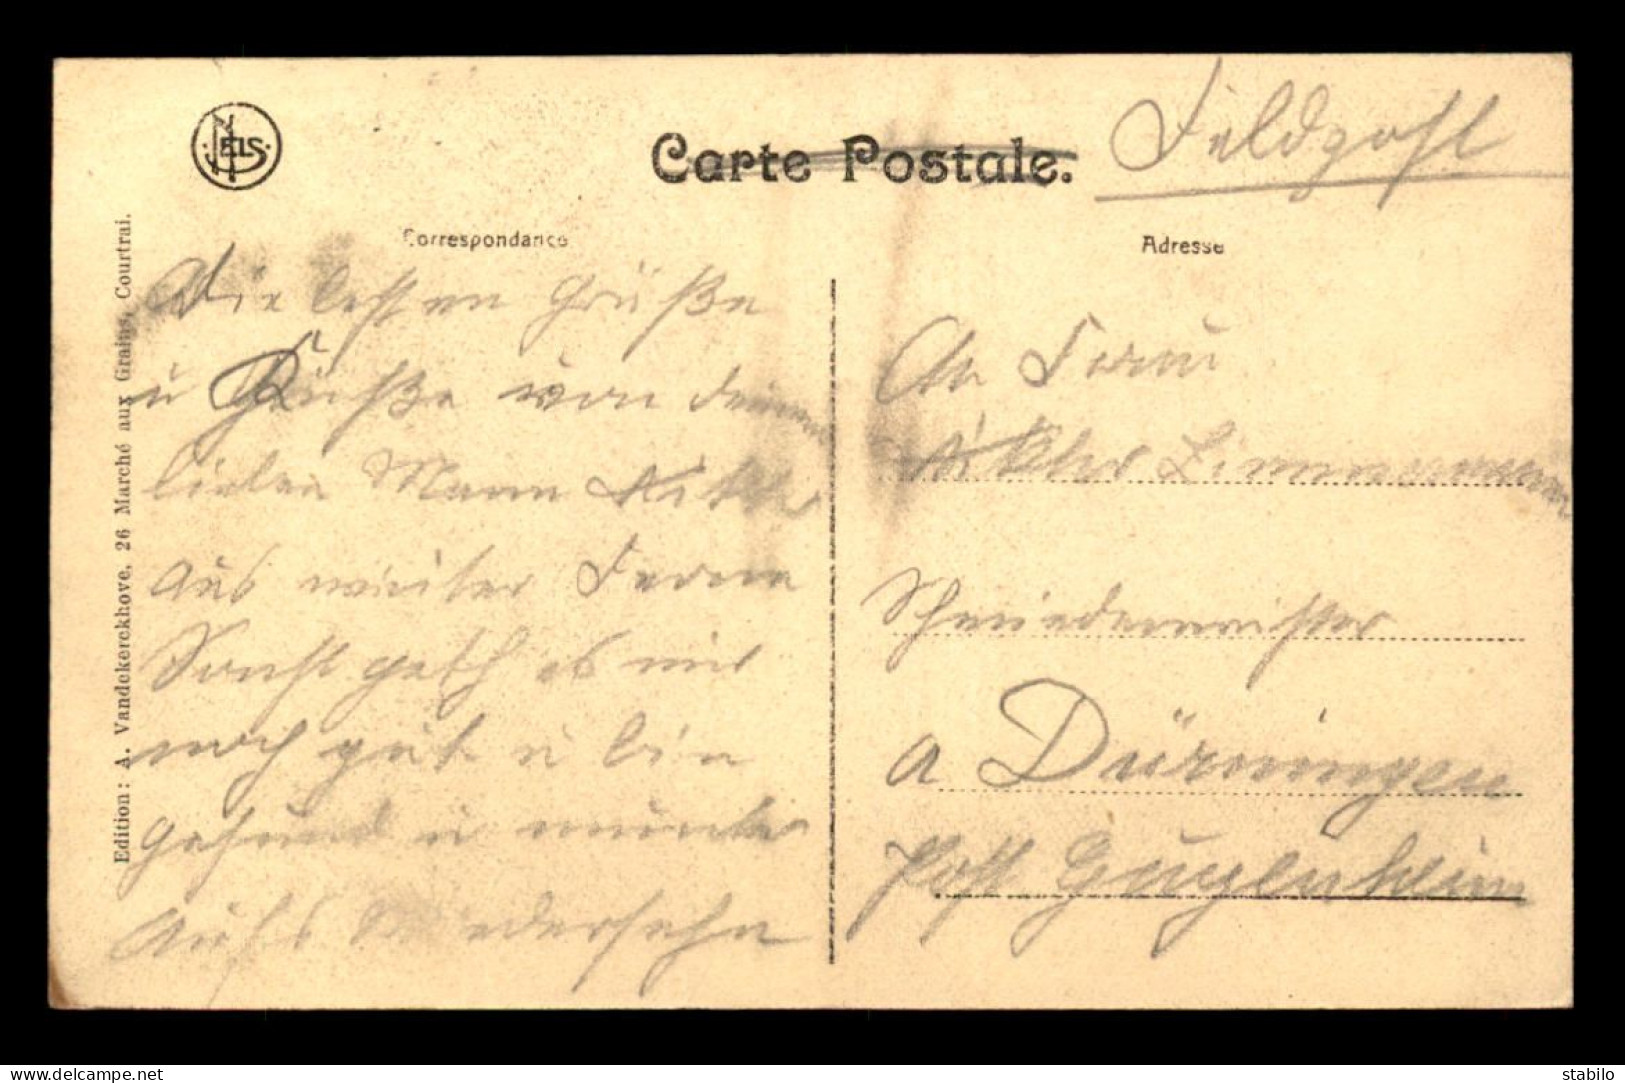 NELS
Carte Postale.
Feldpost
Correspondance
Adresse
Edition: A. Vandekerckhove, 26 Marché aux Grains, Courtrai.
Die besten Grüße
u Küße von deinem
lieben Mann Viktor
aus weiter Ferne
Sonst geth es mir
noch gut u bin
gesund u munter
Aufs Wiedersehn
An Frau
Viktor Zimmermann
Schmiedemeister
a Dürningen
Post Gugenheim
www.delcampe.net
stabilo